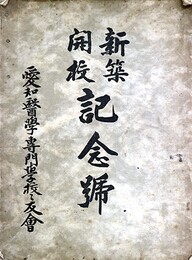 新築
開校
記念號
愛知醫學專門學校々友會